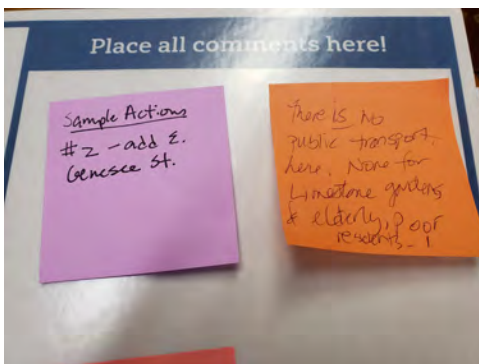 Place all comments here!
Sample Actions
#2 - add E.
Genesee St.
There is no
public transport.
here. None for
Limestone gardens
& elderly, poor
residents - !